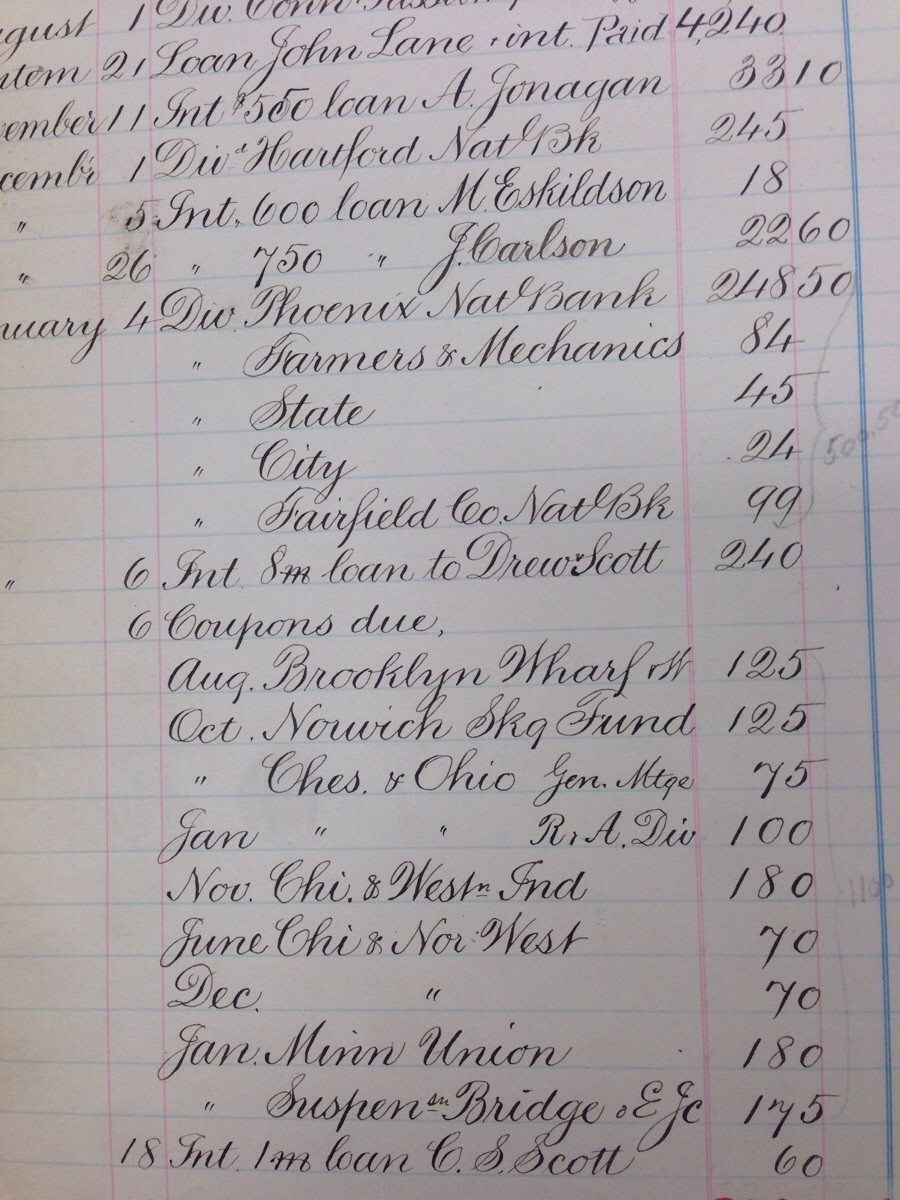 1 Div. Conn
21 Loan John Lane & int. Paid 4,240
11 Int $550 loan A. Jonagan 33 10
1 Divd Hartford Natl Bk 245
" 5 Int. 600 loan M. Eskildson 18
" 26 " 750 " J. Carlson 22 60
4 Div. Phoenix Natl Bank 248 50
" Farmers & Mechanics 84
" State 45
" City 24
" Fairfield Co. Natl Bk 99
500.50
" 6 Int. 8m loan to Drew & Scott 240
6 Coupons due,
Aug. Brooklyn Wharf & W 125
Oct. Norwich Skg Fund 125
" Ches. & Ohio Gen. Mtge 75
Jan " " R & A. Div 100
Nov. Chi. & Westn Ind 180
1100
June Chi & Nor. West 70
Dec. " 70
Jan. Minn Union 180
" Suspensn Bridge & E Jc 175
18 Int. 1m loan C. S. Scott 60